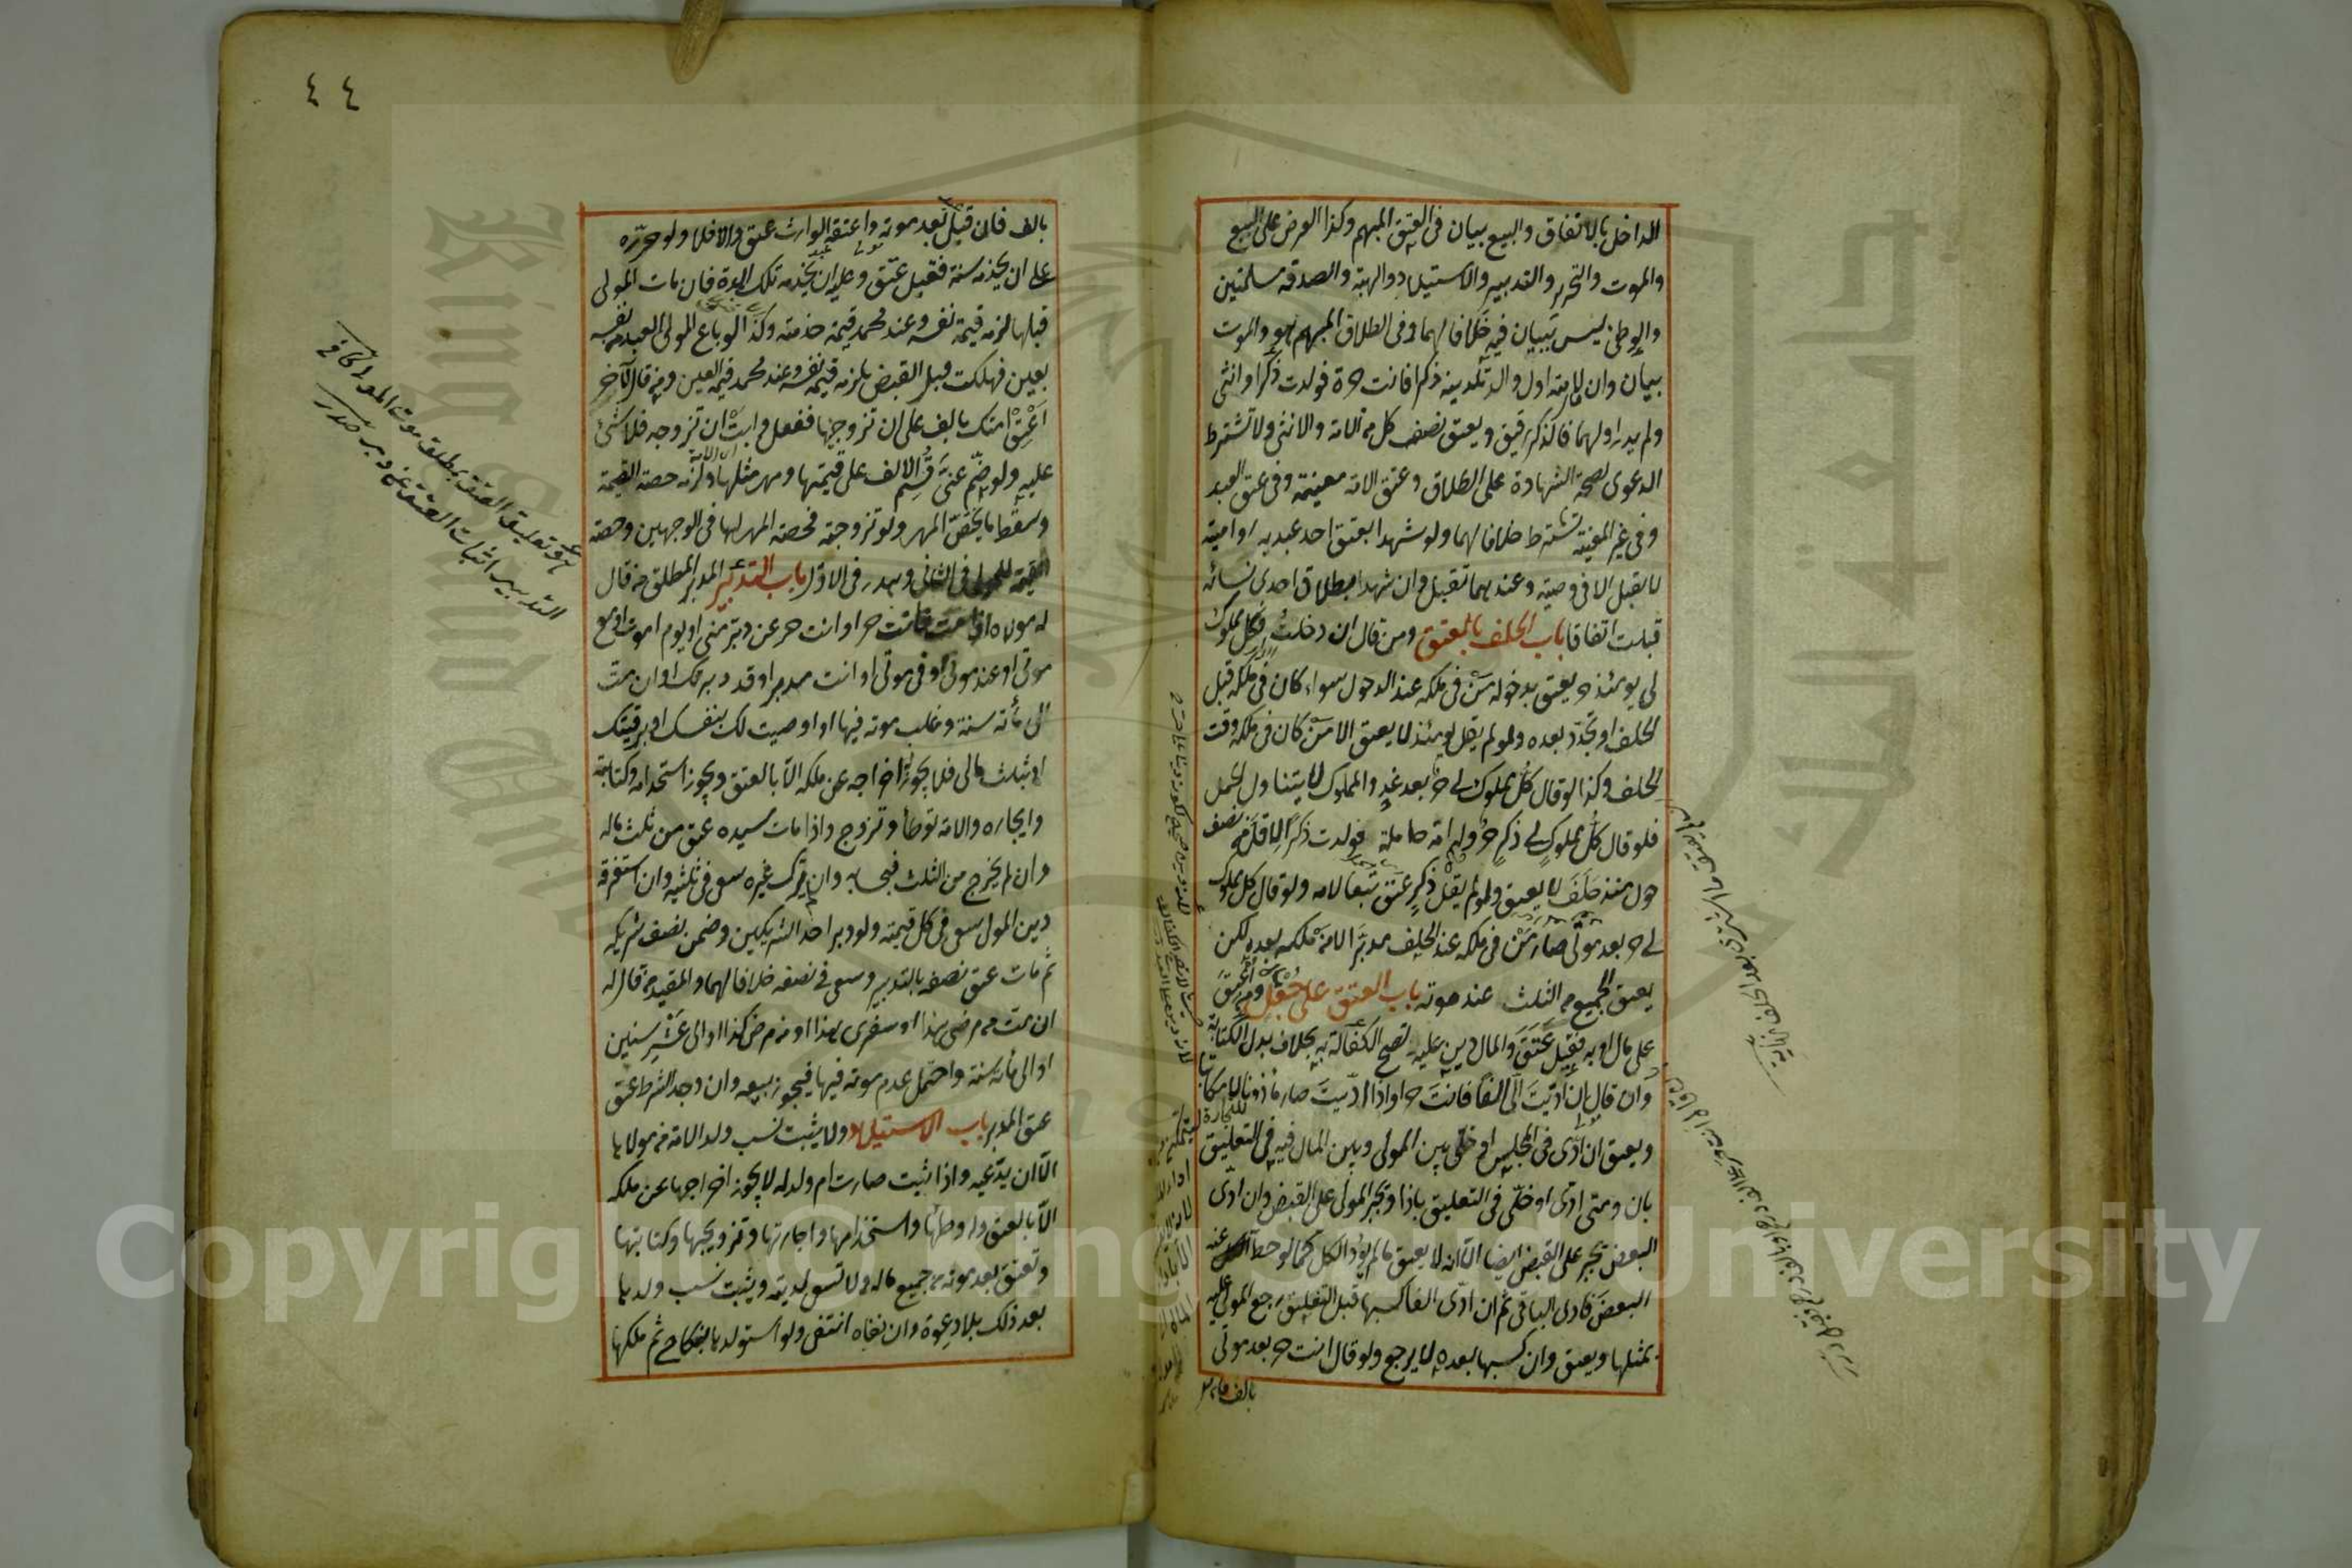 الداخل بالاتفاق والبيع بيان فى العتق المبهم وكذا العرض على البيع
والموت والتحرير والتدبير والاستيلاد والهبة والصدقة مسلمتين
والوطئ ليس ببيان فيه خلافا لهما وفى الطلاق المبهم هو والموت
بيان وان قال لامته اول ولد تلدينه ذكرا فانت حرة فولدت ذكرا وانثى
ولم يدر اولهما فالذكر رقيق ويعتق نصف كل من الامة والانثى ولا تشترط
الدعوى لصحة الشهادة على الطلاق وعتق الامة معينة وفى عتق العبد
وفى غير المعينة تشترط خلافا لهما ولو شهدا بعتق احد عبديه او امتيه
لا يقبل الا فى وصية وعندهما تقبل وان شهدا بطلاق احدى نسائه
قبلت اتفاقا باب الحلف بالعتق ومن قال ان دخلت فكل مملوك
لى يومئذ حر يعتق بدخوله من فى ملكه عند الدخول سواء كان فى ملكه قبل
الحلف او تجدد بعده ولو لم يقل يومئذ لا يعتق الا من كان فى ملكه وقت
الحلف وكذا لو قال كل مملوك لى حر بعد غد والمملوك لا يتناول الحمل
فلو قال كل مملوك لى ذكر حر وله امة حاملة فولدت ذكرا لاقل من نصف
حول منذ حلف لا يعتق ولو لم يقل ذكر عتق تبعا لامه ولو قال كل مملوك
لى حر بعد موتى صار من فى ملكه عند الحلف مدبرا لا من ملكه بعده لكن
يعتق الجميع من الثلث عند موته باب العتق على جعل ومن اعتق
على مال او به فقبل عتق والمال دين عليه تصح الكفالة به بخلاف بدل الكتابة
وان قال ان اديت الى الفا فانت حر او اذا اديت صار ماذونا لا مكاتبا
ويعتق ان ادى فى المجلس او خلى بين المولى وبين المال فيه فى التعليق
بان ومتى ادى او خلى فى التعليق باذا ويجبر المولى على القبض وان ادى
البعض يجبر على القبض ايضا الا انه لا يعتق ما لم يؤد الكل كما لو حط عنه
البعض فادى الباقى ثم ان ادى الفا كسبها قبل التعليق رجع المولى عليه
بمثلها ويعتق وان كسبها بعده لا يرجع ولو قال انت حر بعد موتى
بالف فان
٤٤
بالف فان قبل بعد موته واعتقه الوارث عتق والا فلا ولو حرره
على ان يخدمه سنة فقبل عتق وعليه ان يخدمه تلك المدة فان مات المولى
قبلها لزمه قيمة نفسه وعند محمد قيمة خدمته وكذا لو باع المولى العبد من نفسه
بعين فهلكت قبل القبض يلزمه قيمة نفسه وعند محمد قيمة العين ومن قال لآخر
اعتق امتك بالف على ان تزوجنيها ففعل وابت ان تزوجه فلا شئ
عليه ولو ضم عنى قسم الالف على قيمتها ومهر مثلها ولزمه حصة القيمة
وسقط ما يخص المهر ولو تزوجته فحصة المهر لها فى الوجهين وحصة
القيمة للمولى فى الثانى وهدر فى الاول باب التدبير المدبر المطلق من قال
له مولاه اذا مت فانت حر او انت حر عن دبر منى او يوم اموت او مع
موتى او عند موتى او فى موتى او انت مدبر او قد دبرتك او ان مت
الى مأة سنة وغلب موته فيها او اوصيت لك بنفسك او برقبتك
او بثلث مالى فلا يجوز اخراجه عن ملكه الا بالعتق ويجوز استخدامه وكتابته
وايجاره والامة توطأ وتزوج واذا مات سيده عتق من ثلث ماله
وان لم يخرج من الثلث فبحسابه وان لم يترك غيره سعى فى ثلثيه وان استغرقه
دين المولى سعى فى كل قيمته ولو دبر احد الشريكين وضمن نصف شريكه
ثم مات عتق نصفه بالتدبير وسعى فى نصفه خلافا لهما والمقيد من قال له
ان مت من مرضى هذا او سفرى هذا او من مرض كذا او الى عشر سنين
او الى مأة سنة واحتمل عدم موته فيها فيجوز بيعه وان وجد الشرط عتق
عتق المدبر باب الاستيلاد ولا يثبت نسب ولد الامة من مولاها
الا ان يدعيه واذا ثبت صارت ام ولد له لا يجوز اخراجها عن ملكه
الا بالعتق وله وطئها واستخدامها واجارتها وتزويجها وكتابتها
وتعتق بعد موته من جميع ماله ولا تسعى لدينه ويثبت نسب ولدها
بعد ذلك بلا دعوة وان نفاه انتفى ولو استولدها بنكاح ثم ملكها
هو تعليق العتق بمطلق موت المولى كافى
التدبير اثبات العتق عن دبر